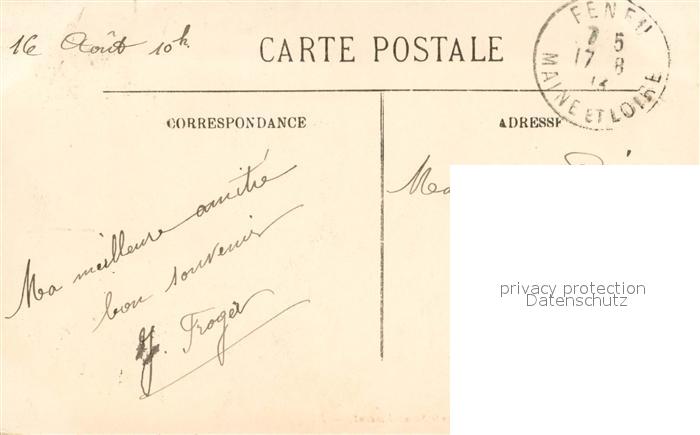 16 Août 10h
CARTE POSTALE
FENEU
7 5
17 8
13
MAINE ET LOIRE
CORRESPONDANCE
ADRESSE
Ma meilleure amitié
bon souvenir
Froger
privacy protection
Datenschutz